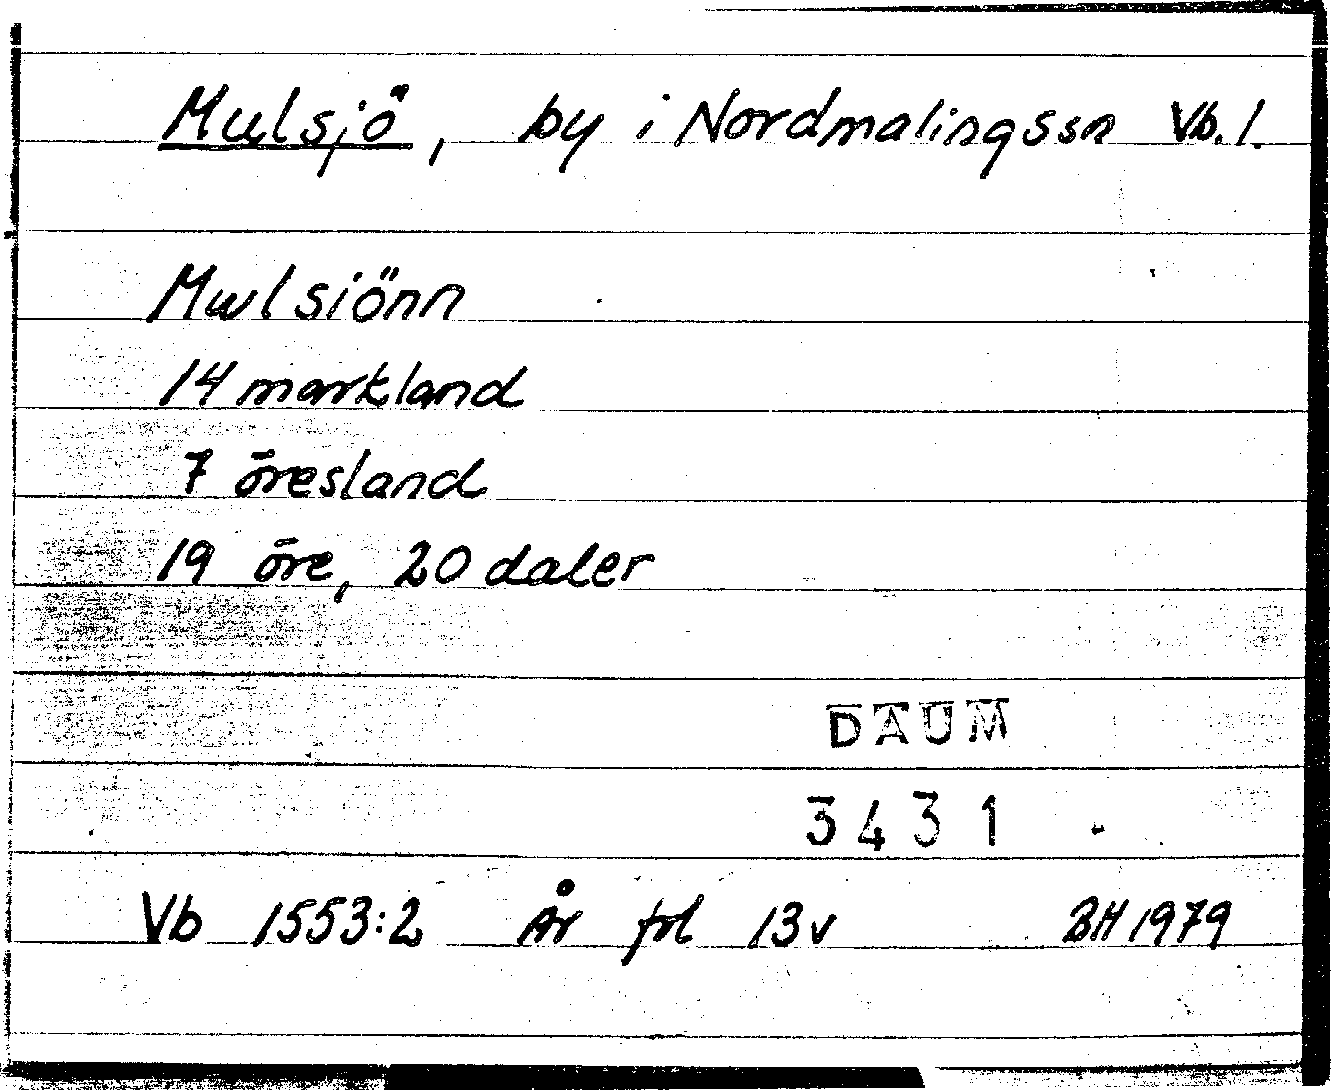 Mulsjö, by i Nordmalings sn Vb. l.
Mwlsiönn
14 markland
7 öresland
19 öre, 20 daler
DAUM
3431
Vb 1553:2 År fol 13v BH 1979